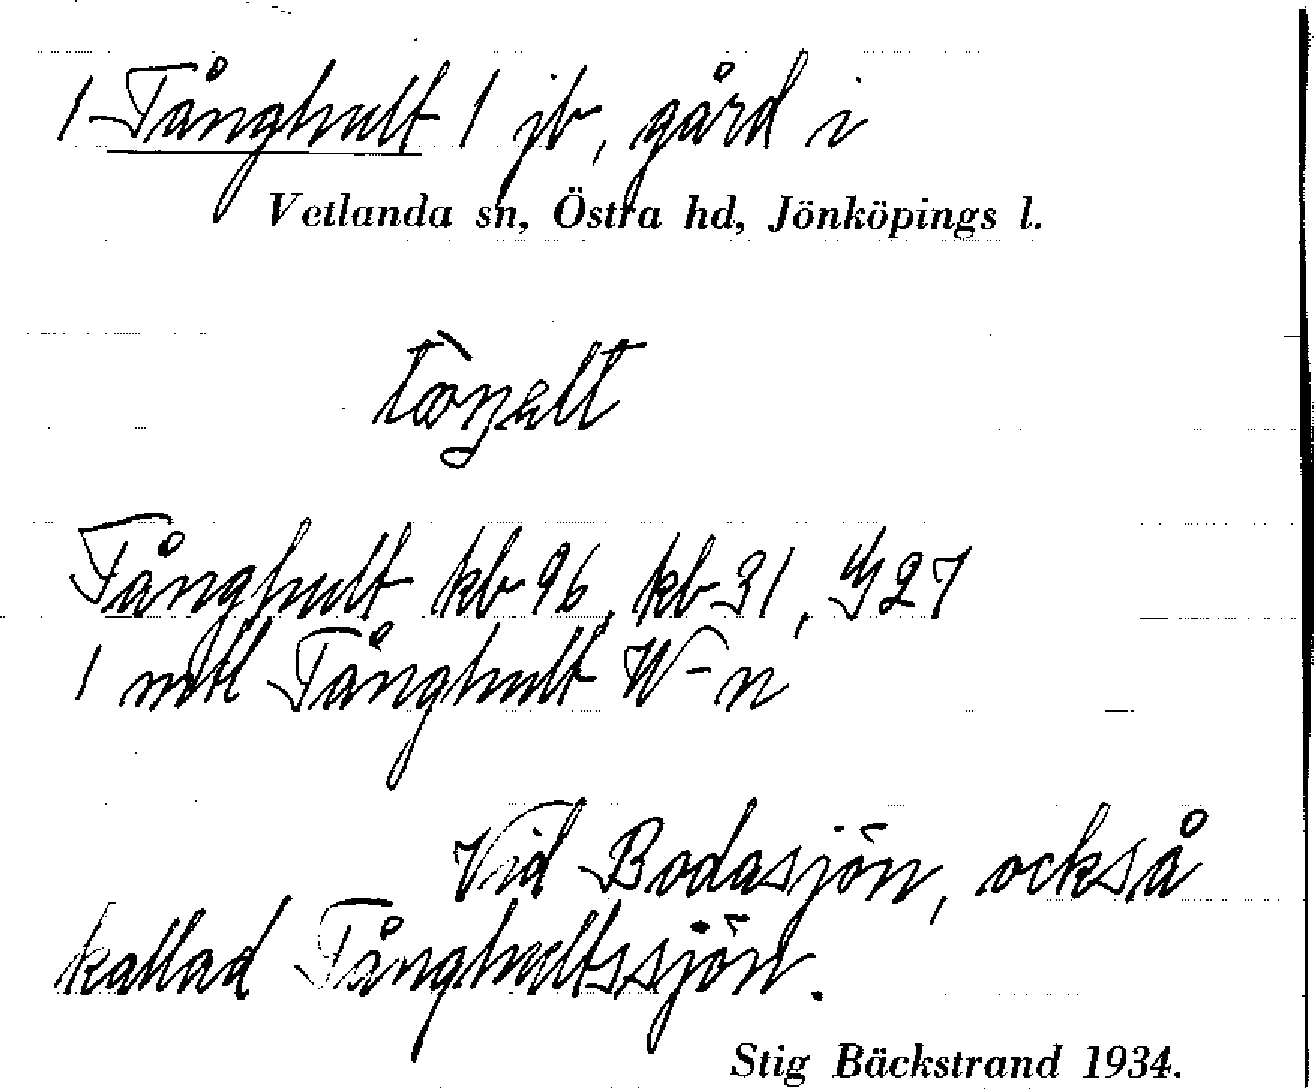 1 Tånghult 1 jb, gård i
Vetlanda sn, Östra hd, Jönköpings l.
Tånghult kb 96, kb 31, G 27
1 mtl Tånghult W-n
Vid Bodasjön, också
kallad Tånghultssjön.
Stig Bäckstrand 1934.